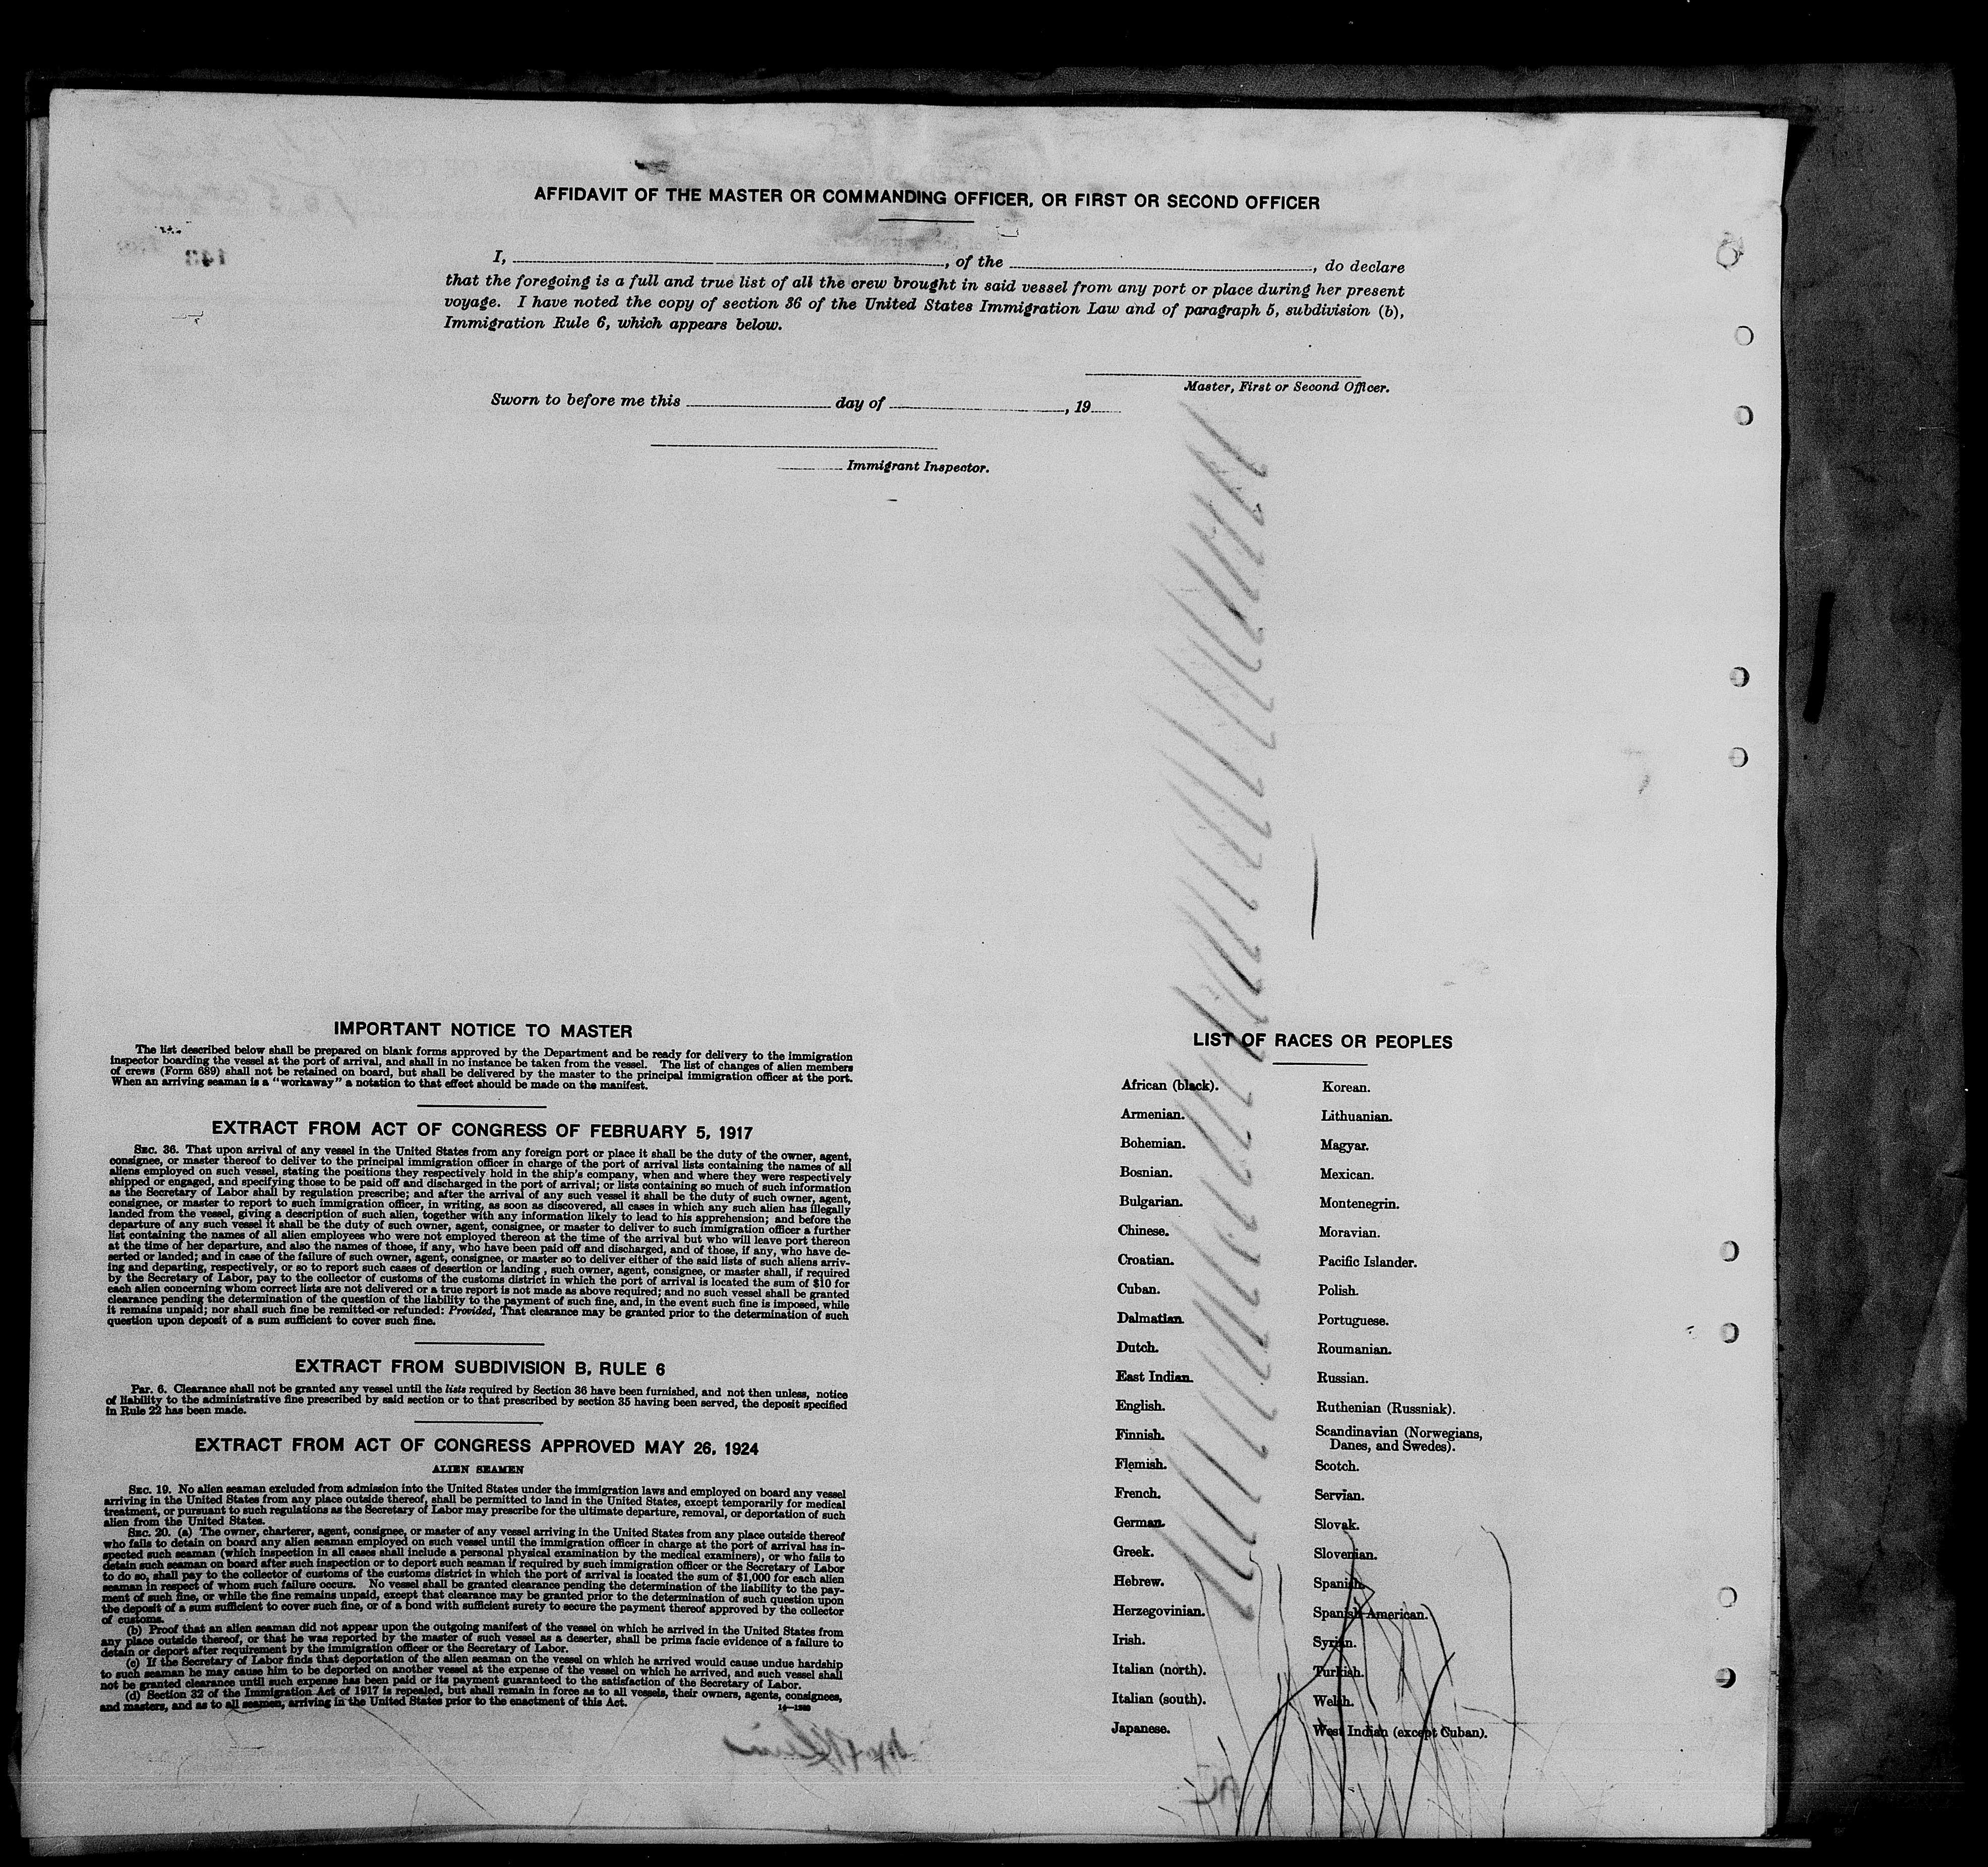 AFFIDAVIT OF THE MASTER OR COMMANDING OFFICER, OR FIRST OR SECOND OFFICER
I, , of the , do declare
that the foregoing is a full and true list of all the crew brought in said vessel from any port or place during her present
voyage. I have noted the copy of section 36 of the United States Immigration Law and of paragraph 5, subdivision (b),
Immigration Rule 6, which appears below.
Master, First or Second Officer.
Sworn to before me this day of , 19
Immigrant Inspector.
IMPORTANT NOTICE TO MASTER
The list described below shall be prepared on blank forms approved by the Department and be ready for delivery to the immigration
inspector boarding the vessel at the port of arrival, and shall in no instance be taken from the vessel. The list of changes of alien members
of crews (Form 689) shall not be retained on board, but shall be delivered by the master to the principal immigration officer at the port.
When an arriving seaman is a "workaway" a notation to that effect should be made on the manifest.
EXTRACT FROM ACT OF CONGRESS OF FEBRUARY 5, 1917
SEC. 36. That upon arrival of any vessel in the United States from any foreign port or place it shall be the duty of the owner, agent,
consignee, or master thereof to deliver to the principal immigration officer in charge of the port of arrival lists containing the names of all
aliens employed on such vessel, stating the positions they respectively hold in the ship's company, when and where they were respectively
shipped or engaged, and specifying those to be paid off and discharged in the port of arrival; or lists containing so much of such information
as the Secretary of Labor shall by regulation prescribe; and after the arrival of any such vessel it shall be the duty of such owner, agent,
consignee, or master to report to such immigration officer, in writing, as soon as discovered, all cases in which any such alien has illegally
landed from the vessel, giving a description of such alien, together with any information likely to lead to his apprehension; and before the
departure of any such vessel it shall be the duty of such owner, agent, consignee, or master to deliver to such immigration officer a further
list containing the names of all alien employees who were not employed thereon at the time of the arrival but who will leave port thereon
at the time of her departure, and also the names of those, if any, who have been paid off and discharged, and of those, if any, who have de-
serted or landed; and in case of the failure of such owner, agent, consignee, or master so to deliver either of the said lists of such aliens arriv-
ing and departing, respectively, or so to report such cases of desertion or landing , such owner, agent, consignee, or master shall, if required
by the Secretary of Labor, pay to the collector of customs of the customs district in which the port of arrival is located the sum of $10 for
each alien concerning whom correct lists are not delivered or a true report is not made as above required; and no such vessel shall be granted
clearance pending the determination of the question of the liability to the payment of such fine, and, in the event such fine is imposed, while
it remains unpaid; nor shall such fine be remitted or refunded: Provided, That clearance may be granted prior to the determination of such
question upon deposit of a sum sufficient to cover such fine.
EXTRACT FROM SUBDIVISION B, RULE 6
Par. 6. Clearance shall not be granted any vessel until the lists required by Section 36 have been furnished, and not then unless, notice
of liability to the administrative fine prescribed by said section or to that prescribed by section 35 having been served, the deposit specified
in Rule 22 has been made.
EXTRACT FROM ACT OF CONGRESS APPROVED MAY 26, 1924
ALIEN SEAMEN
SEC. 19. No alien seaman excluded from admission into the United States under the immigration laws and employed on board any vessel
arriving in the United States from any place outside thereof, shall be permitted to land in the United States, except temporarily for medical
treatment, or pursuant to such regulations as the Secretary of Labor may prescribe for the ultimate departure, removal, or deportation of such
alien from the United States.
SEC. 20. (a) The owner, charterer, agent, consignee, or master of any vessel arriving in the United States from any place outside thereof
who fails to detain on board any alien seaman employed on such vessel until the immigration officer in charge at the port of arrival has in-
spected such seaman (which inspection in all cases shall include a personal physical examination by the medical examiners), or who fails to
detain such seaman on board after such inspection or to deport such seaman if required by such immigration officer or the Secretary of Labor
to do so, shall pay to the collector of customs of the customs district in which the port of arrival is located the sum of $1,000 for each alien
seaman in respect of whom such failure occurs. No vessel shall be granted clearance pending the determination of the liability to the pay-
ment of such fine, or while the fine remains unpaid, except that clearance may be granted prior to the determination of such question upon
the deposit of a sum sufficient to cover such fine, or of a bond with sufficient surety to secure the payment thereof approved by the collector
of customs.
(b) Proof that an alien seaman did not appear upon the outgoing manifest of the vessel on which he arrived in the United States from
any place outside thereof, or that he was reported by the master of such vessel as a deserter, shall be prima facie evidence of a failure to
detain or deport after requirement by the immigration officer or the Secretary of Labor.
(c) If the Secretary of Labor finds that deportation of the alien seaman on the vessel on which he arrived would cause undue hardship
to such seaman he may cause him to be deported on another vessel at the expense of the vessel on which he arrived, and such vessel shall
not be granted clearance until such expense has been paid or its payment guaranteed to the satisfaction of the Secretary of Labor.
(d) Section 32 of the Immigration Act of 1917 is repealed, but shall remain in force as to all vessels, their owners, agents, consignees,
and masters, and as to all seamen, arriving in the United States prior to the enactment of this Act.
LIST OF RACES OR PEOPLES
African (black).
Armenian.
Bohemian.
Bosnian.
Bulgarian.
Chinese.
Croatian.
Cuban.
Dalmatian.
Dutch.
East Indian.
English.
Finnish.
Flemish.
French.
German.
Greek.
Hebrew.
Herzegovinian.
Irish.
Italian (north).
Italian (south).
Japanese.
Korean.
Lithuanian.
Magyar.
Mexican.
Montenegrin.
Moravian.
Pacific Islander.
Polish.
Portuguese.
Roumanian.
Russian.
Ruthenian (Russniak).
Scandinavian (Norwegians,
Danes, and Swedes).
Scotch.
Servian.
Slovak.
Slovenian.
Spanish.
Spanish American.
Syrian.
Turkish.
Welsh.
West Indian (except Cuban).